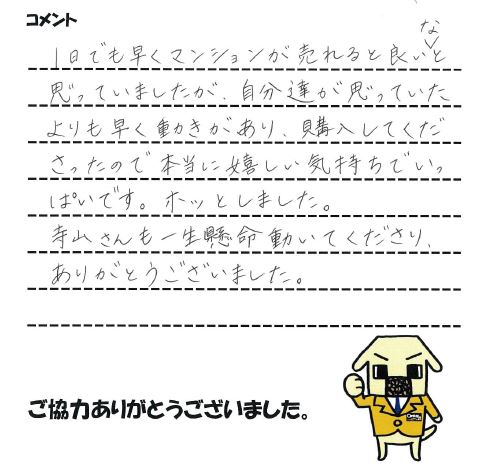 コメント
1日でも早くマンションが売れると良いなと
思っていましたが、自分達が思っていた
よりも早く動きがあり、購入してくだ
さったので本当に嬉しい気持ちでいっ
ぱいです。ホッとしました。
寺山さんも一生懸命動いてくださり、
ありがとうございました。
ご協力ありがとうございました。